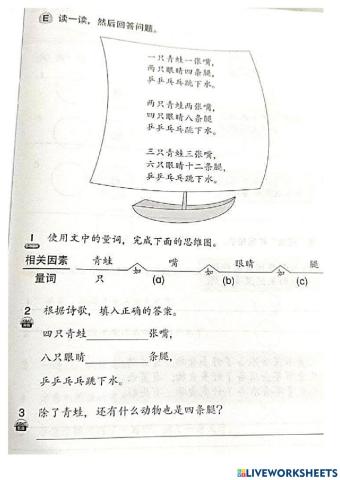 E 读一读，然后回答问题。
一只青蛙一张嘴，
两只眼睛四条腿，
乒乒乓乓跳下水。
两只青蛙两张嘴，
四只眼睛八条腿
乒乒乓乓跳下水。
三只青蛙三张嘴，
六只眼睛十二条腿，
乒乒乓乓跳下水。
1 使用文中的量词，完成下面的思维图。
相关因素 青蛙 如 嘴 如 眼睛 如 腿
量词 只 (a) (b) (c)
2 根据诗歌，填入正确的答案。
四只青蛙________张嘴，
八只眼睛________条腿，
乒乒乓乓跳下水。
3 除了青蛙，还有什么动物也是四条腿？
LIVEWORKSHEETS